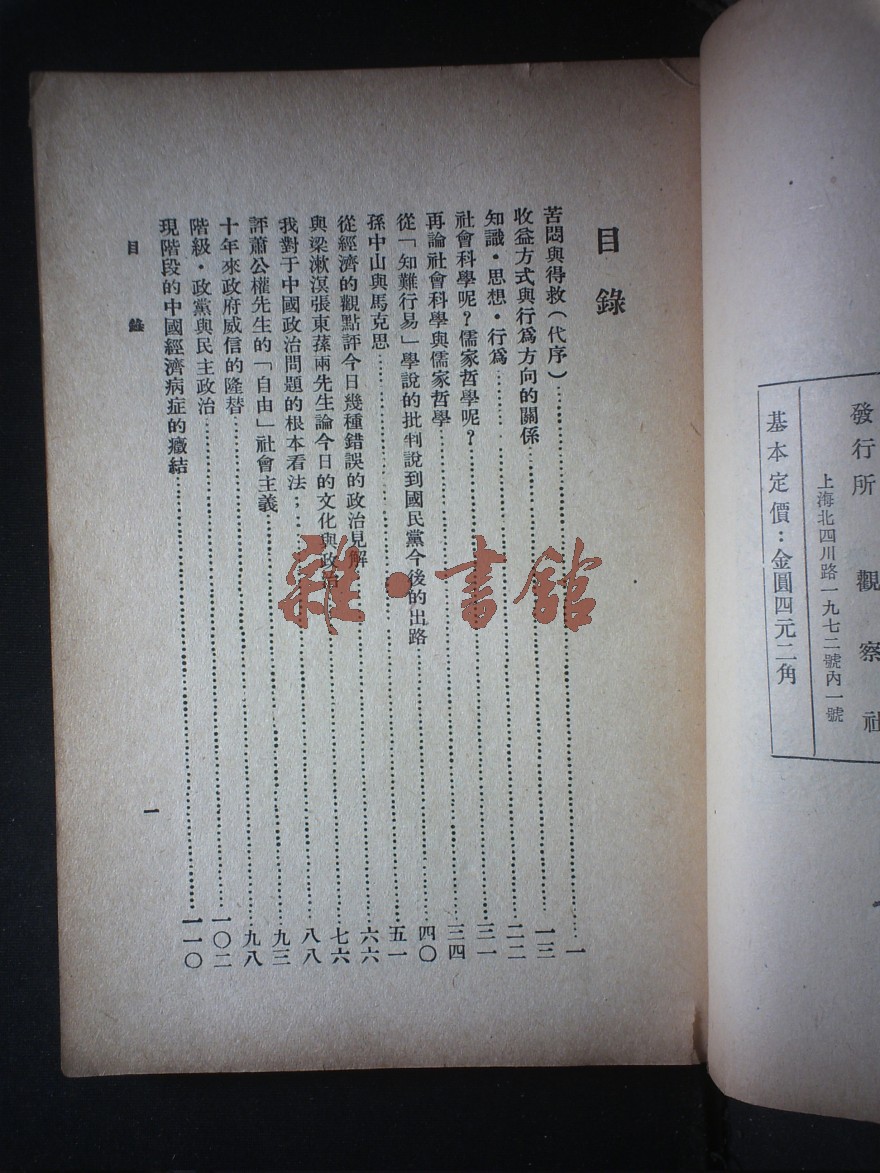 發行所 觀察社
上海北四川路一九七二號內一號
基本定價：金圓四元二角
目錄
苦悶與得救（代序）…………一
收益方式與行爲方向的關係…………一三
知識・思想・行爲…………二二
社會科學呢？儒家哲學呢？…………三一
再論社會科學與儒家哲學…………三四
從「知難行易」學說的批判說到國民黨今後的出路…………四〇
孫中山與馬克思…………五一
從經濟的觀點評今日幾種錯誤的政治見解…………六六
與梁漱溟張東蓀兩先生論今日的文化與政治…………七六
我對于中國政治問題的根本看法…………八八
評蕭公權先生的「自由」社會主義…………九三
十年來政府威信的隆替…………九八
階級・政黨與民主政治…………一〇二
現階段的中國經濟病症的癥結…………一一〇
目錄
一
雜・書館